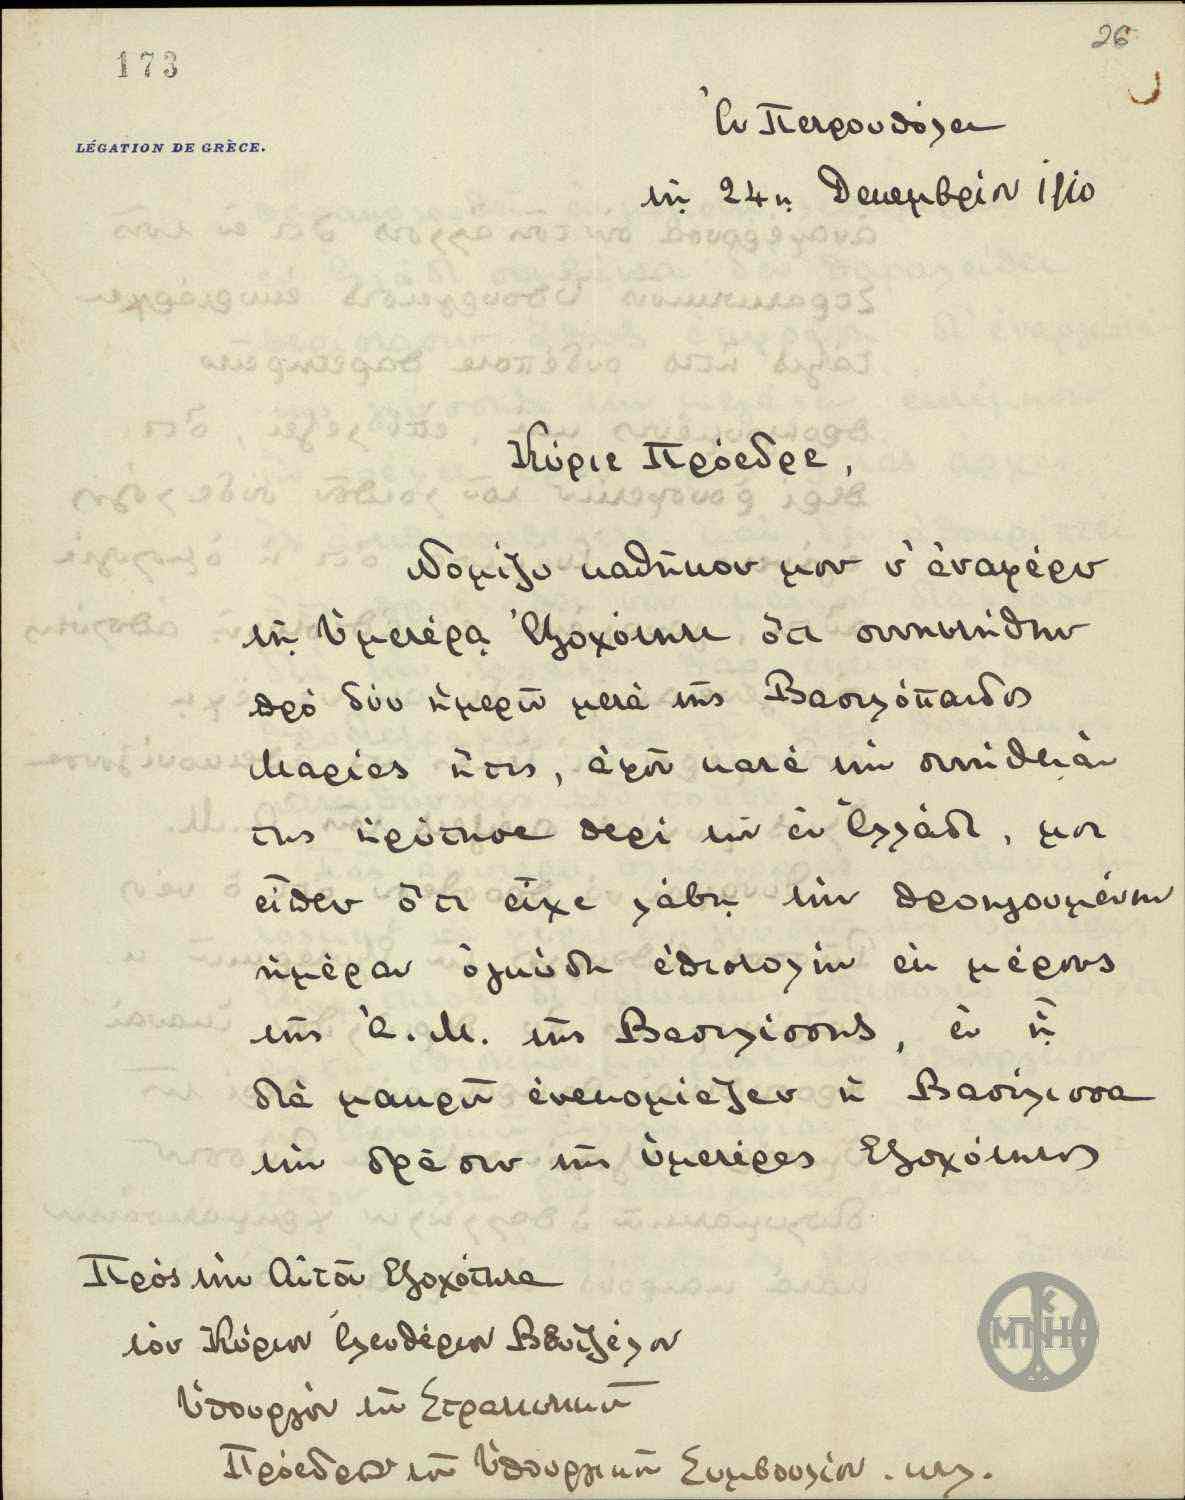 173
26
LÉGATION DE GRÈCE.
Ἐν Πετρουπόλει
τῇ 24ῃ Δεκεμβρίου 1910
Κύριε Πρόεδρε,
Νομίζω καθῆκον μου ν' ἀναφέρω
τῇ Ὑμετέρᾳ Ἐξοχότητι ὅτι συνηντήθην
πρὸ δύο ἡμερῶν μετὰ τῆς Βασιλόπαιδος
Μαρίας ἥτις, ἀφοῦ κατὰ τὴν συνήθειάν
της ἠρώτησε περὶ τῶν ἐν Ἑλλάδι, μοι
εἶπεν ὅτι εἶχε λάβῃ τὴν προηγουμένην
ἡμέραν ὀγκώδη ἐπιστολὴν ἐκ μέρους
τῆς Α. Μ. τῆς Βασιλίσσης, ἐν ᾗ
διὰ μακρῶν ἐνεκωμίαζεν ἡ Βασίλισσα
τὴν δρᾶσιν τῆς Ὑμετέρας Ἐξοχότητος
Πρὸς τὴν Αὐτοῦ Ἐξοχότητα
τὸν Κύριον Ἐλευθέριον Βενιζέλον
Ὑπουργὸν τῶν Στρατιωτικῶν
Πρόεδρον τοῦ Ὑπουργικοῦ Συμβουλίου. κτλ.
ΜΝΗΘ